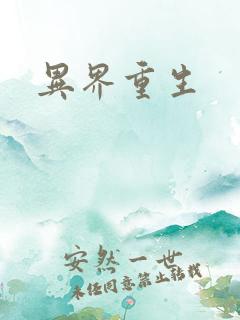 異界重生
安然一世
未经同意禁止转载